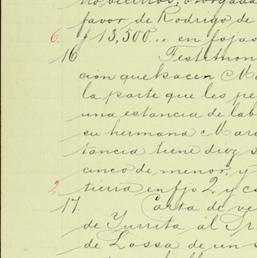 no vecinos, otorgada
favor de Rodrigo de
6. $13,500.. en fojas
16. Testimon
cion que hacen Ma
la parte que les pe
una estancia de lab
su hermana Mara
tancia tiene diez s
cinco de menor, y
2. tierra en fjs 2, y c
17. Carta de ve
de Yurrita al Sr
de Lossa de un s